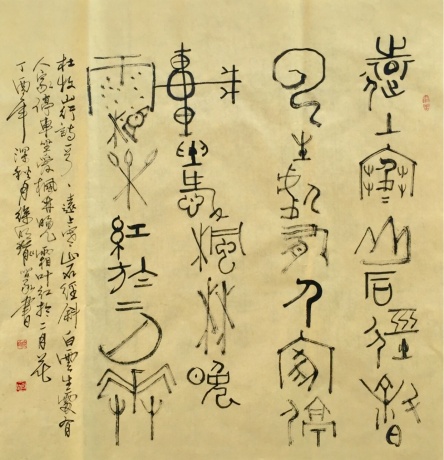 遠上寒山石徑斜
白云生處有人家停
車坐愛楓林晚
霜葉紅於二月花
杜牧山行詩一首遠上寒山石徑斜白雲生處有
人家停車坐愛楓林晚霜叶紅於二月花
丁酉年深秋月徐書